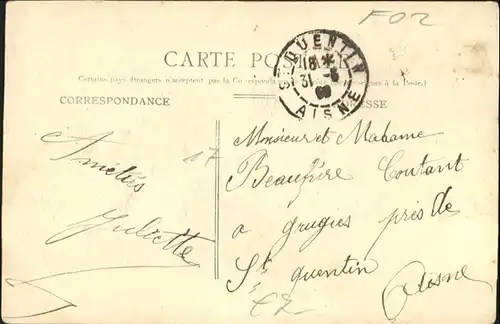 F02
CARTE PO
Certains pays étrangers n'acceptent pas la Co à la Poste.)
CORRESPONDANCE
ESSE
ST QUENTIN
18
31
AISNE
17
Amitiés
Juliette
Monsieur et Madame
Beaufrère Coutant
a grugies près de
St quentin
Aisne